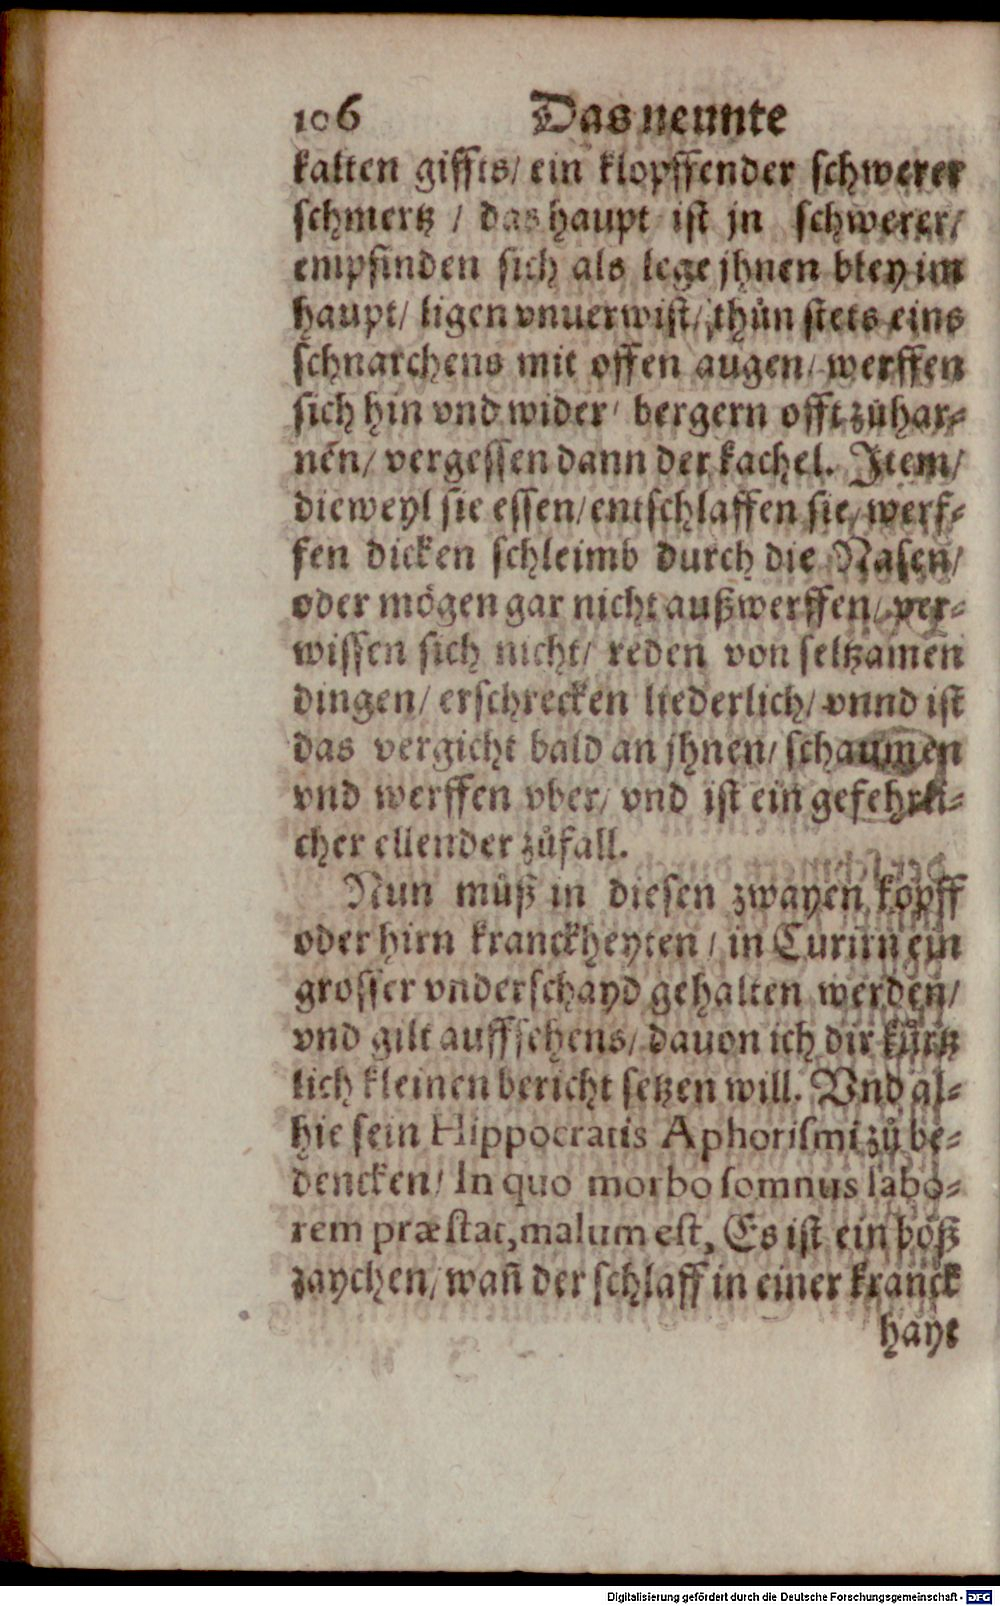 106 Das neunte
kalten giffts/ ein klopffender schwerer
schmertz / das haupt ist jn schwerer/
empfinden sich als lege jhnen bley im
haupt/ ligen vnuerwist/ thůn stets eins
schnarchens mit offen augen/ werffen
sich hin vnd wider/ bergern offt zůhar⸗
nen/ vergessen dann der kachel. Item/
dieweyl sie essen/ entschlaffen sie/ werf⸗
fen dicken schleimb durch die Nasen/
oder mögen gar nicht außwerffen/ ver⸗
wissen sich nicht/ reden von seltzamen
dingen/ erschrecken liederlich/ vnnd ist
das vergicht bald an jhnen/ schaumen
vnd werffen vber/ vnd ist ein gefehrli⸗
cher ellender zůfall.
Nun můß in diesen zwayen kopff
oder hirn kranckheyten / in Curirn ein
grosser vnderschayd gehalten werden/
vnd gilt auffsehens/ dauon ich dir kürtz
lich kleinen bericht setzen will. Vnd al⸗
hie sein Hippocratis Aphorismi zů be⸗
dencken/ In quo morbo somnus labo⸗
rem præstat, malum est, Es ist ein böß
zaychen/ wañ der schlaff in einer kranck
hayt
Digitalisierung gefördert durch die Deutsche Forschungsgemeinschaft - DFG